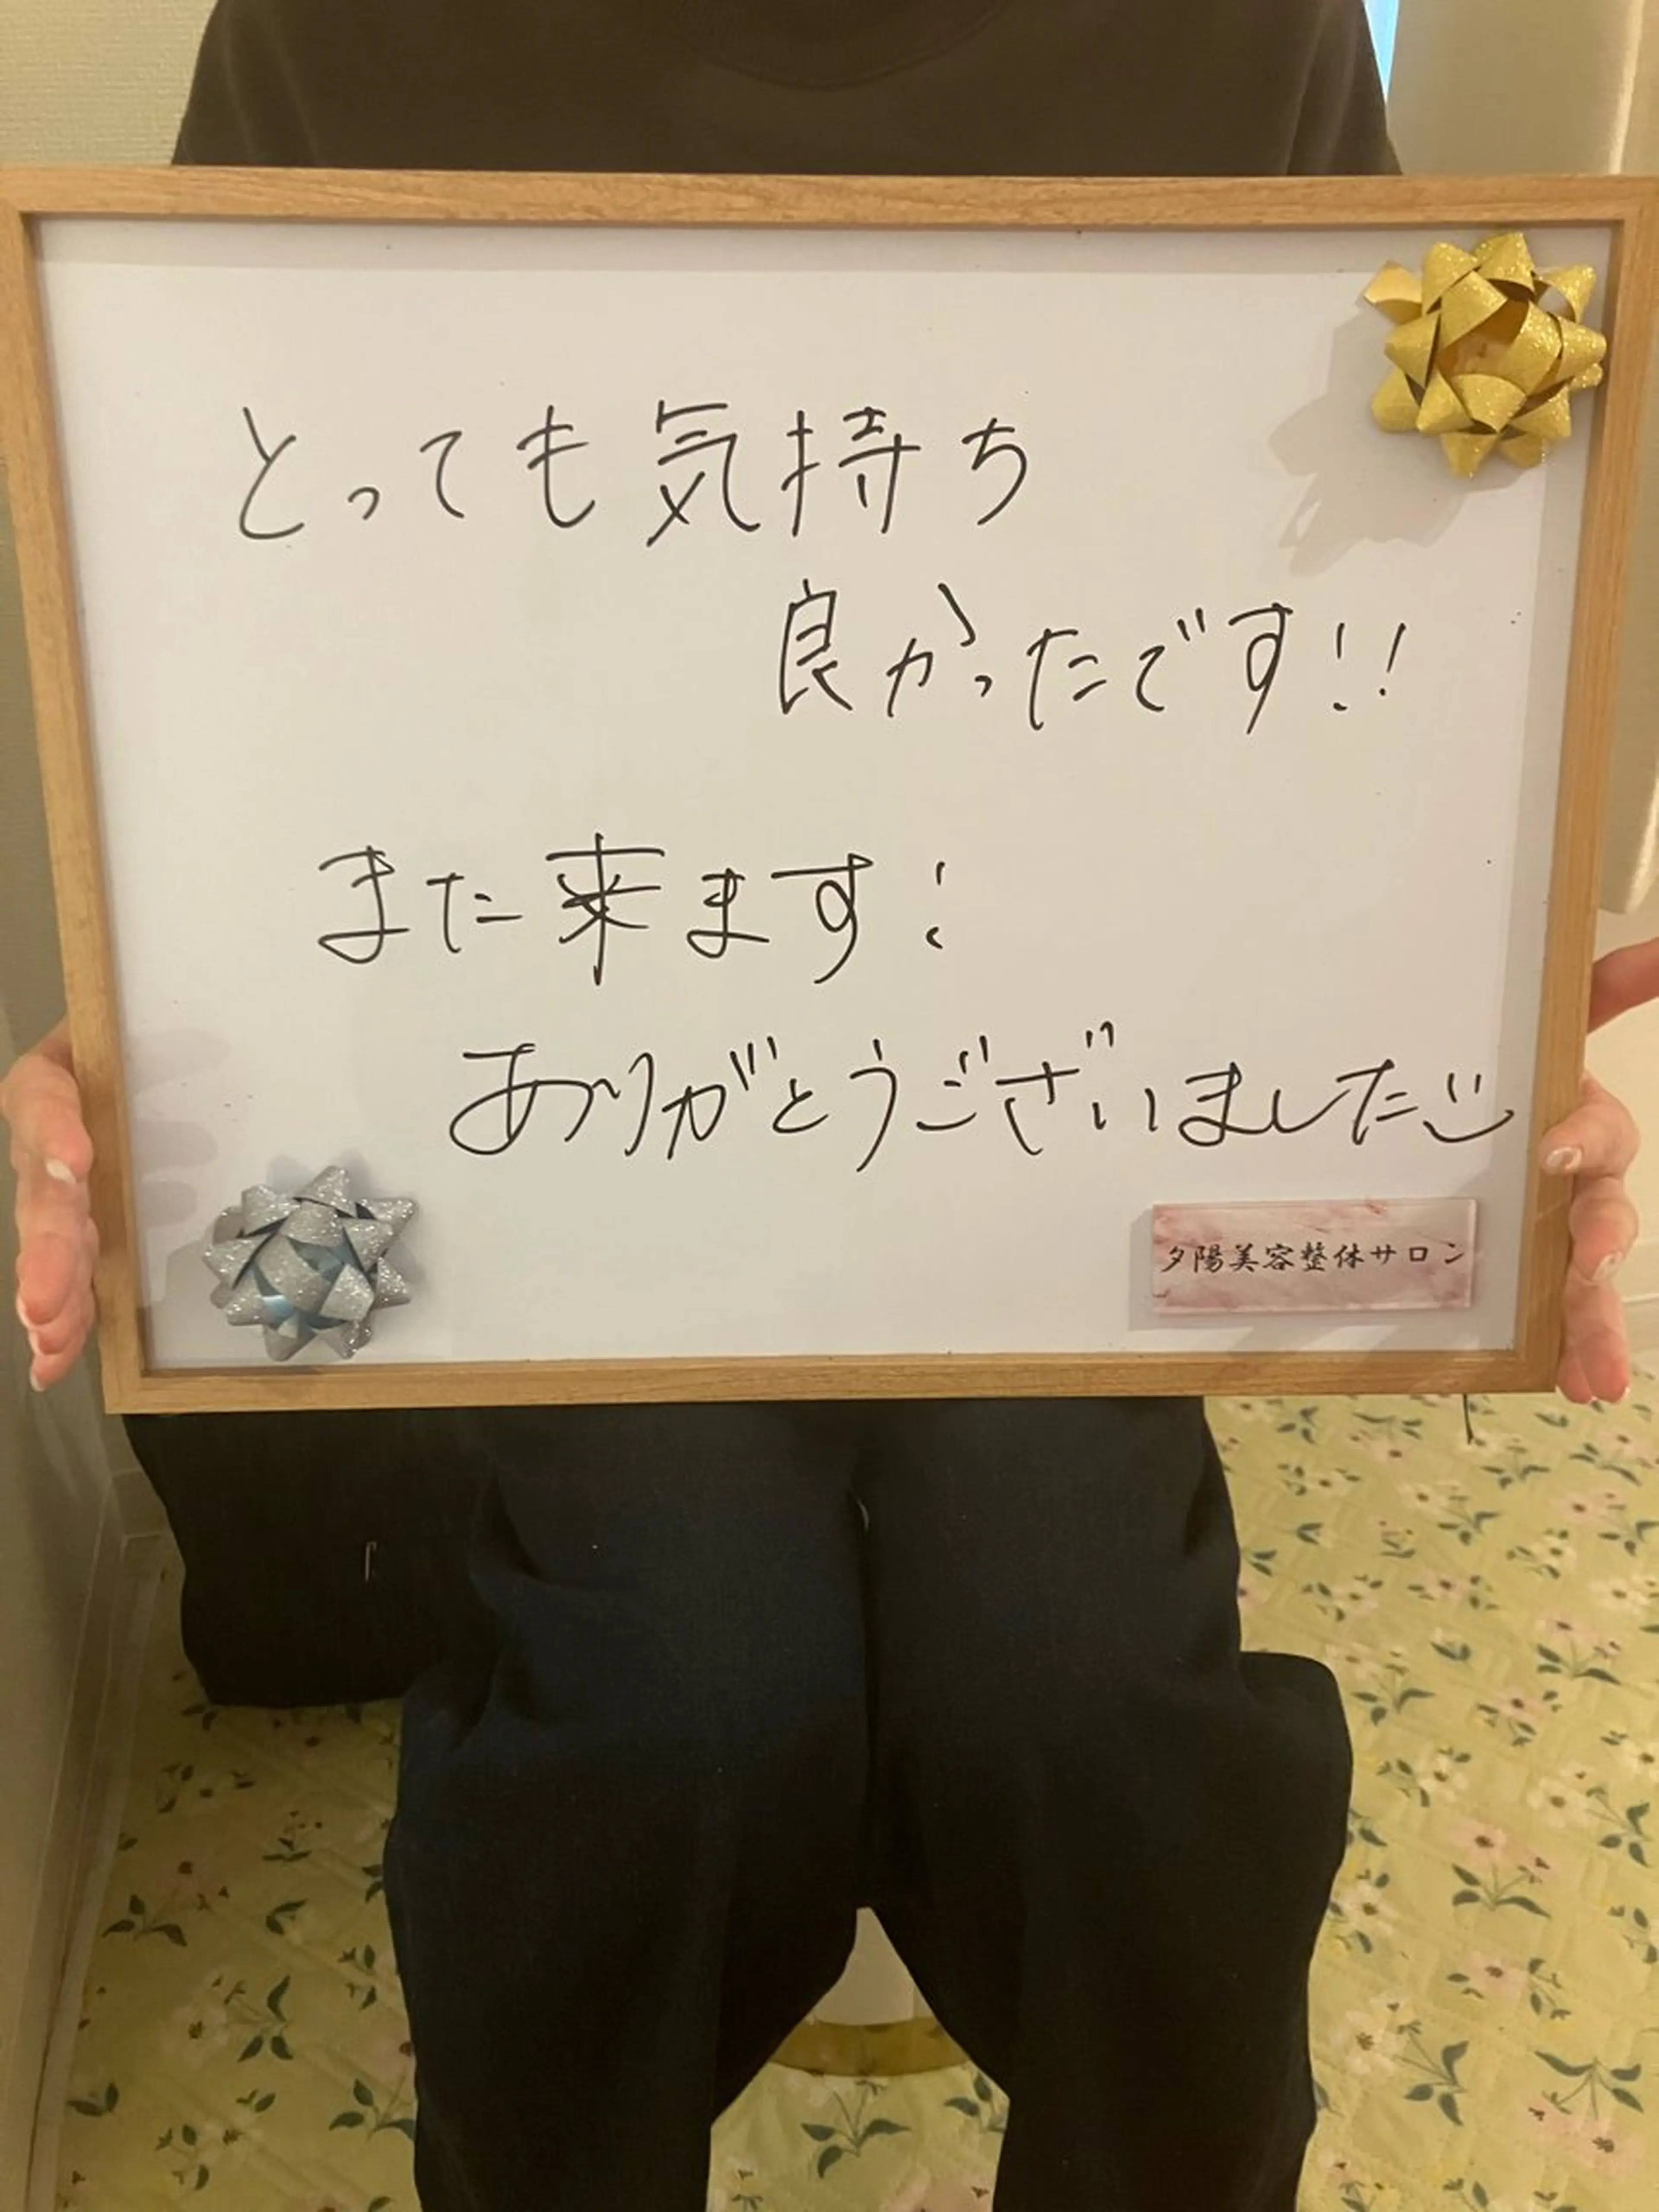 とっても気持ち
良かったです!!
また来ます!
ありがとうございました
夕陽美容整体サロン